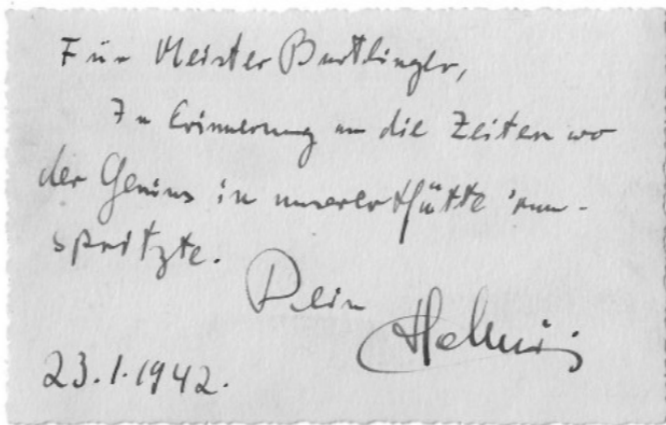 Für Meister
In Erinnerung an die Zeiten wo
der Genius in unserer Hütte 'rum-
spritzte.
Dein
23.1.1942.